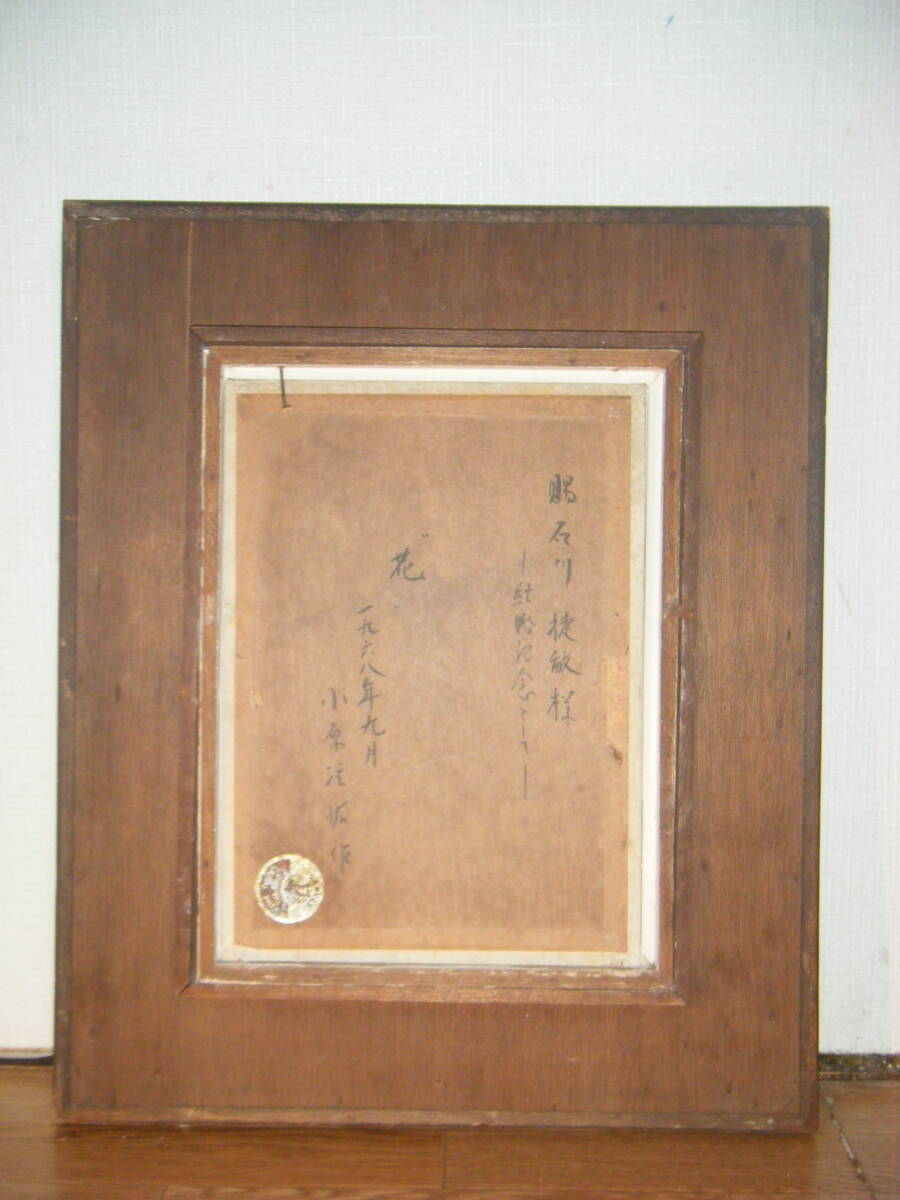 賜 石川 捷敏 様
―結婚記念として―
“花”
一九六八年九月
小原 作